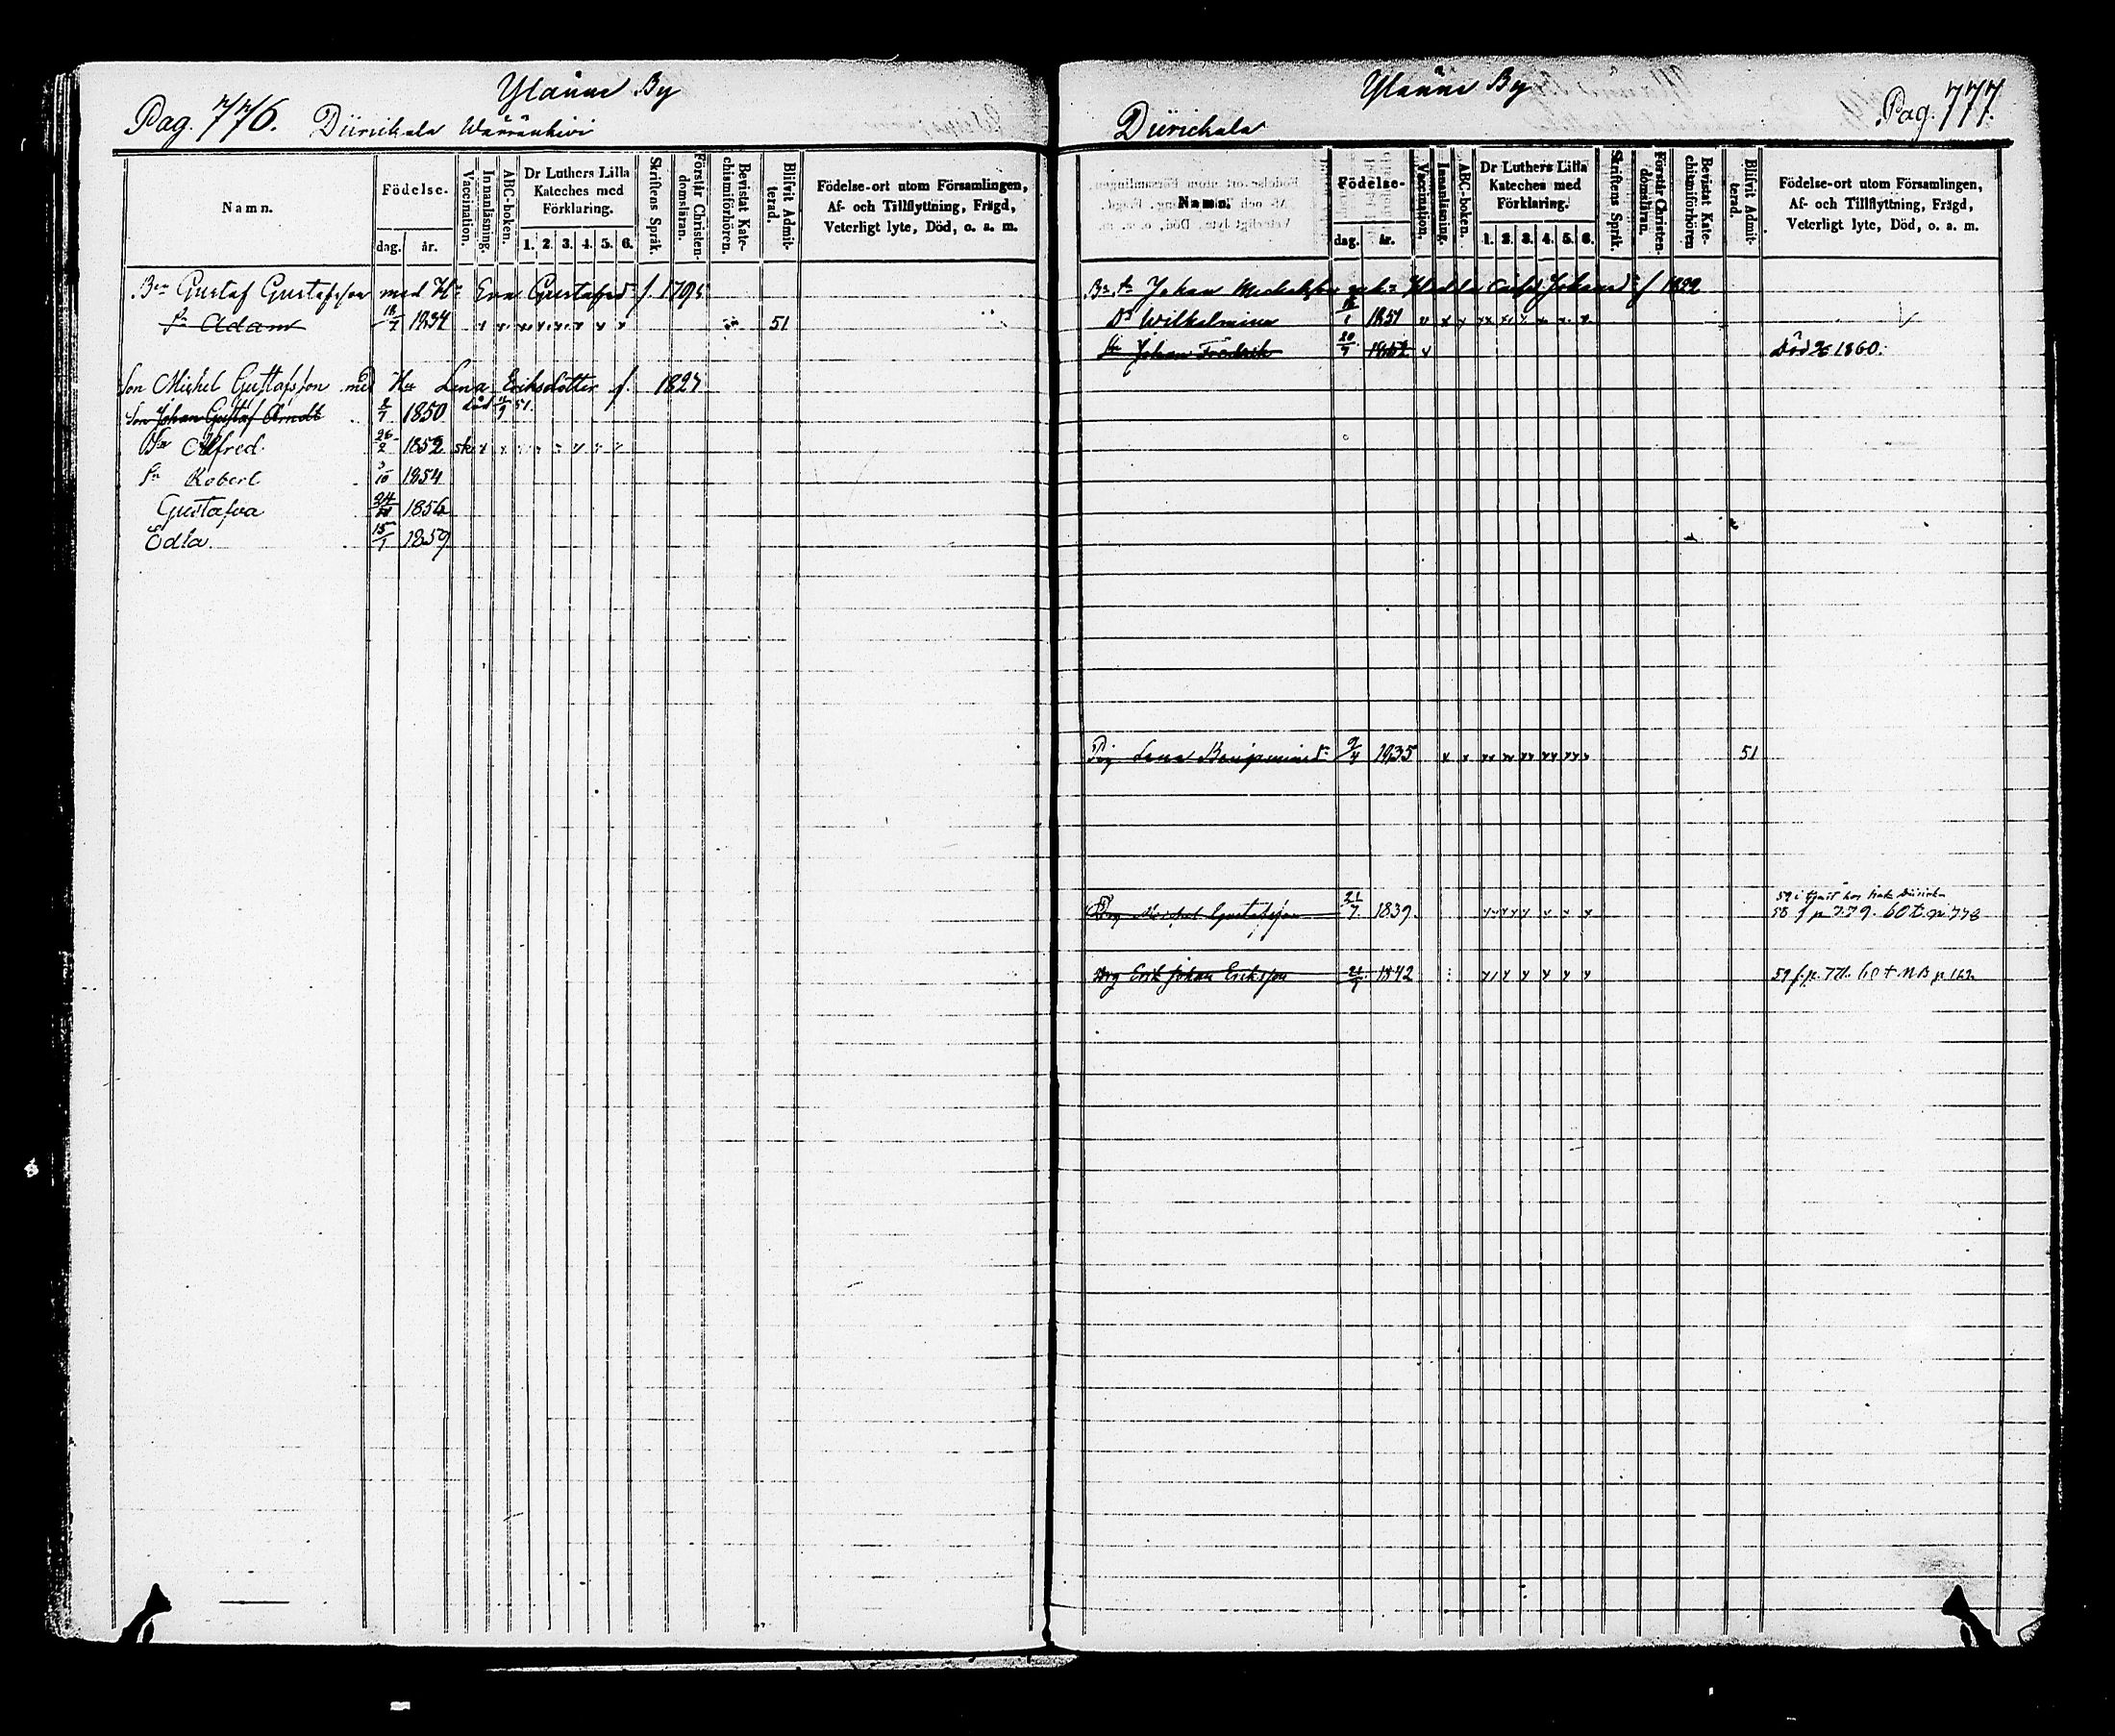 Yläune By
Pag. 776. Diirichala Wääränkivi
Namn.
Födelse-
dag. år.
Vaccination.
Innanläsning.
ABC-boken.
Dr Luthers Lilla
Kateches med
Förklaring.
1. 2. 3. 4. 5. 6.
Skriftens Språk.
Förstår Christen-
domsläran.
Bevistat Kate-
chismiförhören.
Blifvit Admit-
terad.
Födelse-ort utom Församlingen,
Af- och Tillflyttning, Frägd,
Veterligt lyte, Död, o. a. m.
Gustaf Gustafsson med Hu Eva Gustafsd: f. 1795
Sn Adam 18/7 1834 51
Son Michel Gustafsson med Hu Lena Eriksdotter f. 1827
Son Johan Gustaf Arndt 2/7 1850 död 51.
Alfred 26/2 1852
Sn Robert 3/10 1854
Gustafva 1856
Edla. 15/1 1859
Yläune By
Diirichala Pag. 777.
Namn.
Födelse-
dag. år.
Vaccination.
Innanläsning.
ABC-boken.
Dr Luthers Lilla
Kateches med
Förklaring.
1. 2. 3. 4. 5. 6.
Skriftens Språk.
Förstår Christen-
domsläran.
Bevistat Kate-
chismiförhören
Blifvit Admit-
terad.
Födelse-ort utom Församlingen,
Af- och Tillflyttning, Frägd,
Veterligt lyte, Död, o. a. m.
Johan Michelsson
Wilhelmina 1851
Johan Fredrik 20/7 1852 Död 1860.
Pig. Lena Benjaminsd: 9/4 1835 51
59 i tjenst hos
Michel Gustafsson 21/7 1839. 58 f p 779. 60 t. p. 778
Drg Erik Johan Eriksson 1842 59 f. p. 771. 60 t. NB p 162